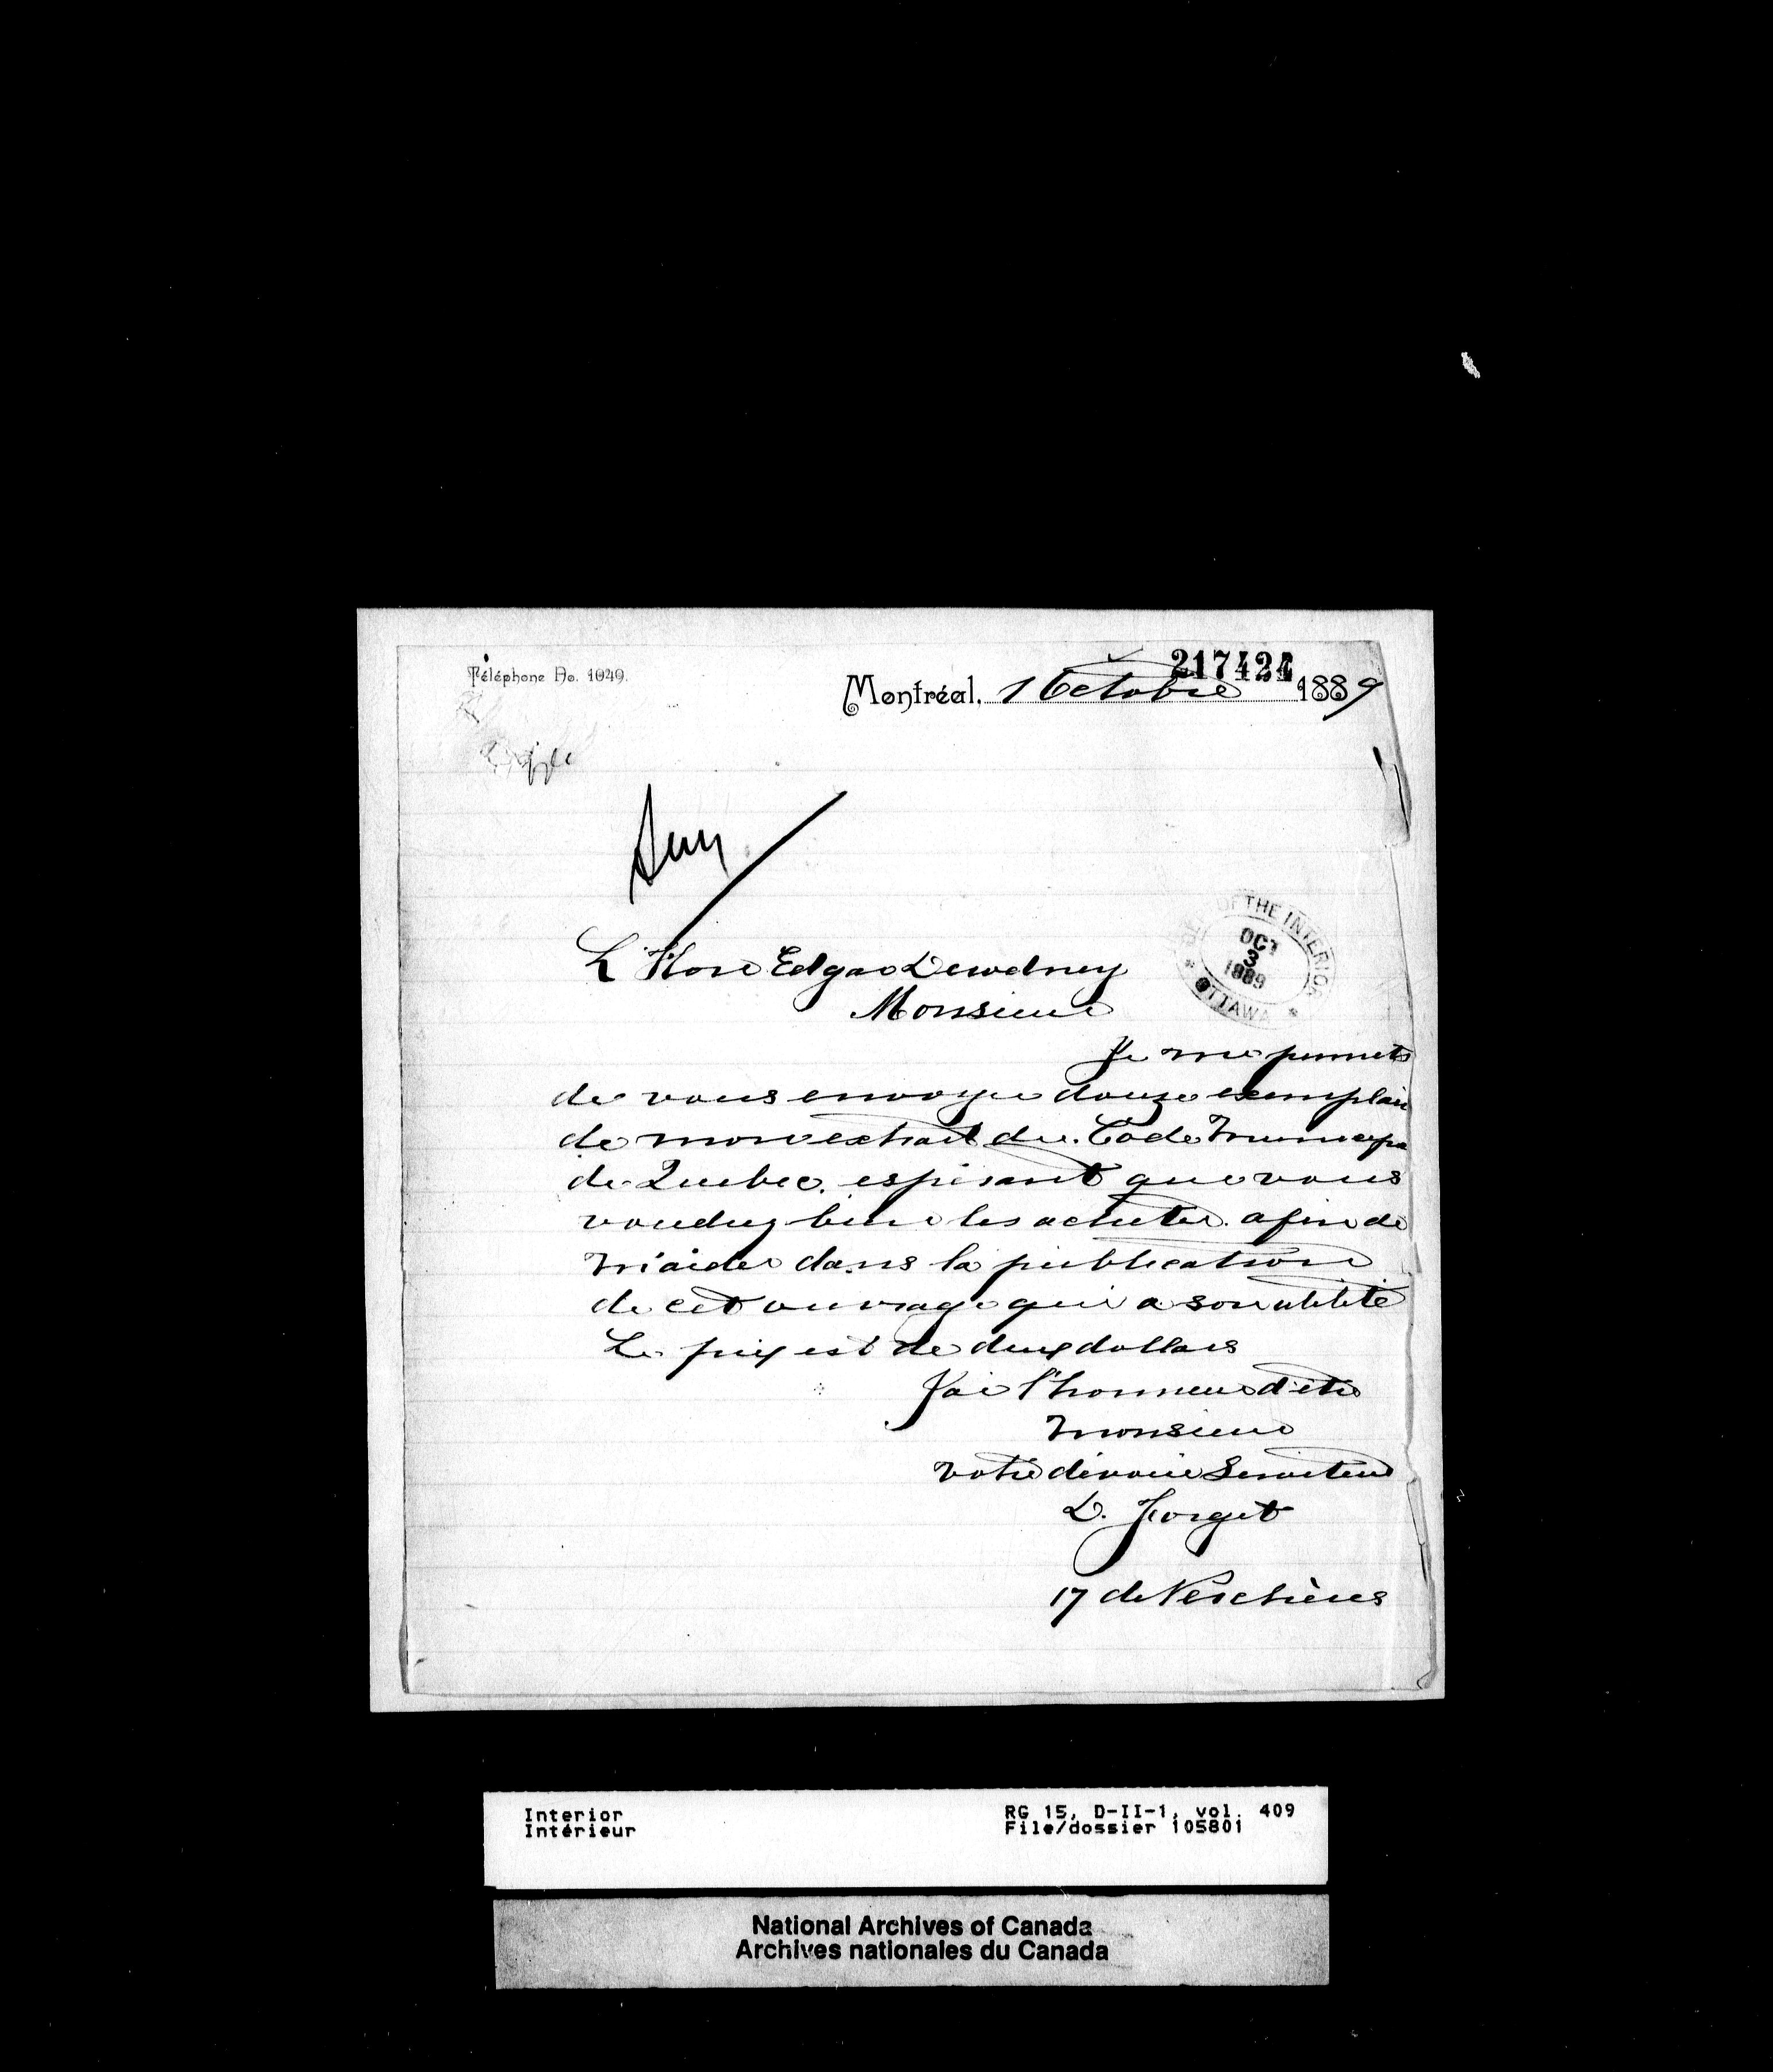 Téléphone No. 1049.
217424
Montréal, 1 Octobre 1889
DEPT OF THE INTERIOR
OCT
3
1889
* OTTAWA *
L'Hon Edgar Dewdney
Monsieur
Je me permets
de vous envoyer douze exemplair
de mon extrait du Code Municipa
de Quebec. espérant que vous
voudrez bien les acheter. afin de
m'aider dans la publication
de cet ouvrage qui a son utilité
Le prix est de deux dollars
J'ai l'honneur d'être
Monsieur
Votre dévoué Serviteur
D. Forget
17 de Verchères
Interior
Intérieur
RG 15, D-II-1, vol. 409
File/dossier 105801
National Archives of Canada
Archives nationales du Canada